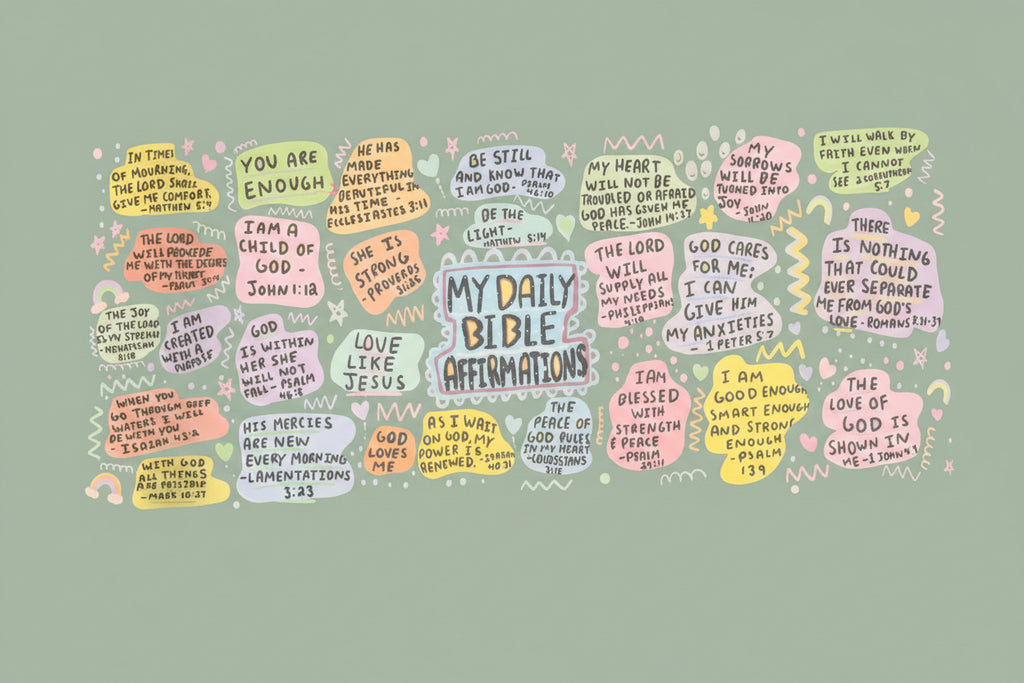 IN TIME!
OF MOURNING,
THE LORD SHALL
GIVE ME COMFORT.
-MATTHEW 5:4
YOU ARE
ENOUGH
HE HAS
MADE
EVERYTHING
BEAUTIFUL IN
HIS TIME -
ECCLESIASTES 3:11
BE STILL
AND KNOW THAT
I AM GOD- PSALM
46:10
MY HEART
WILL NOT BE
TROUBLED OR AFRAID
GOD HAS GSVEN ME
PEACE.-JOHN 14:37
MY
SORROWS
WILL BE
INTO
JOY
JOHN
I WILL WALK BY
FAITH EVEN WHEN
I CANNOT
SEE
5:7
THE LORD
WELL
ME WETH THE
OF MY
I AM A
CHILD OF
GOD -
JOHN 1:12
SHE IS
STRONG
-PROVERDS
BE THE
LIGHT-
MATTHEW 5:14
THE LORD
WILL
SUPPLY ALL
MY NEEDS
-PHILIPPIANS
4:19
GOD CARES
FOR ME;
I CAN
GIVE HIM
MY ANXIETIES
- 1 PETER 5:7
THERE
IS NOTHING
THAT COULD
EVER SEPARATE
ME FROM GOD'S
LOVE -ROMANS
THE JOY
OF THE LORD
I AM
CREATED
WITH A
GOD
IS WITHIN
HER SHE
WILL NOT
FALL - PSALM
46:5
LOVE
LIKE
JESUS
MY DAILY
BIBLE
AFFIRMATIONS
WHEN YOU
GO THROUGH
WATERS I WILL
BE WITH YOU
- ISAIAH 43:2
HIS MERCIES
ARE NEW
EVERY MORNING
-LAMENTATIONS
3:23
GOD
LOVES
ME
AS I WAIT
ON GOD, MY
POWER IS
RENEWED.
40:31
THE
PEACE OF
GOD RULES
IN MY HEART
-COLOSSIANS
I AM
BLESSED
WITH
STRENGTH
& PEACE
-PSALM
29:11
I AM
GOOD ENOUGH
SMART ENOUGH
AND STRONG
ENOUGH
-PSALM
139
THE
LOVE OF
GOD IS
SHOWN IN
ME -1 JOHN
WITH GOD
ALL THENGS